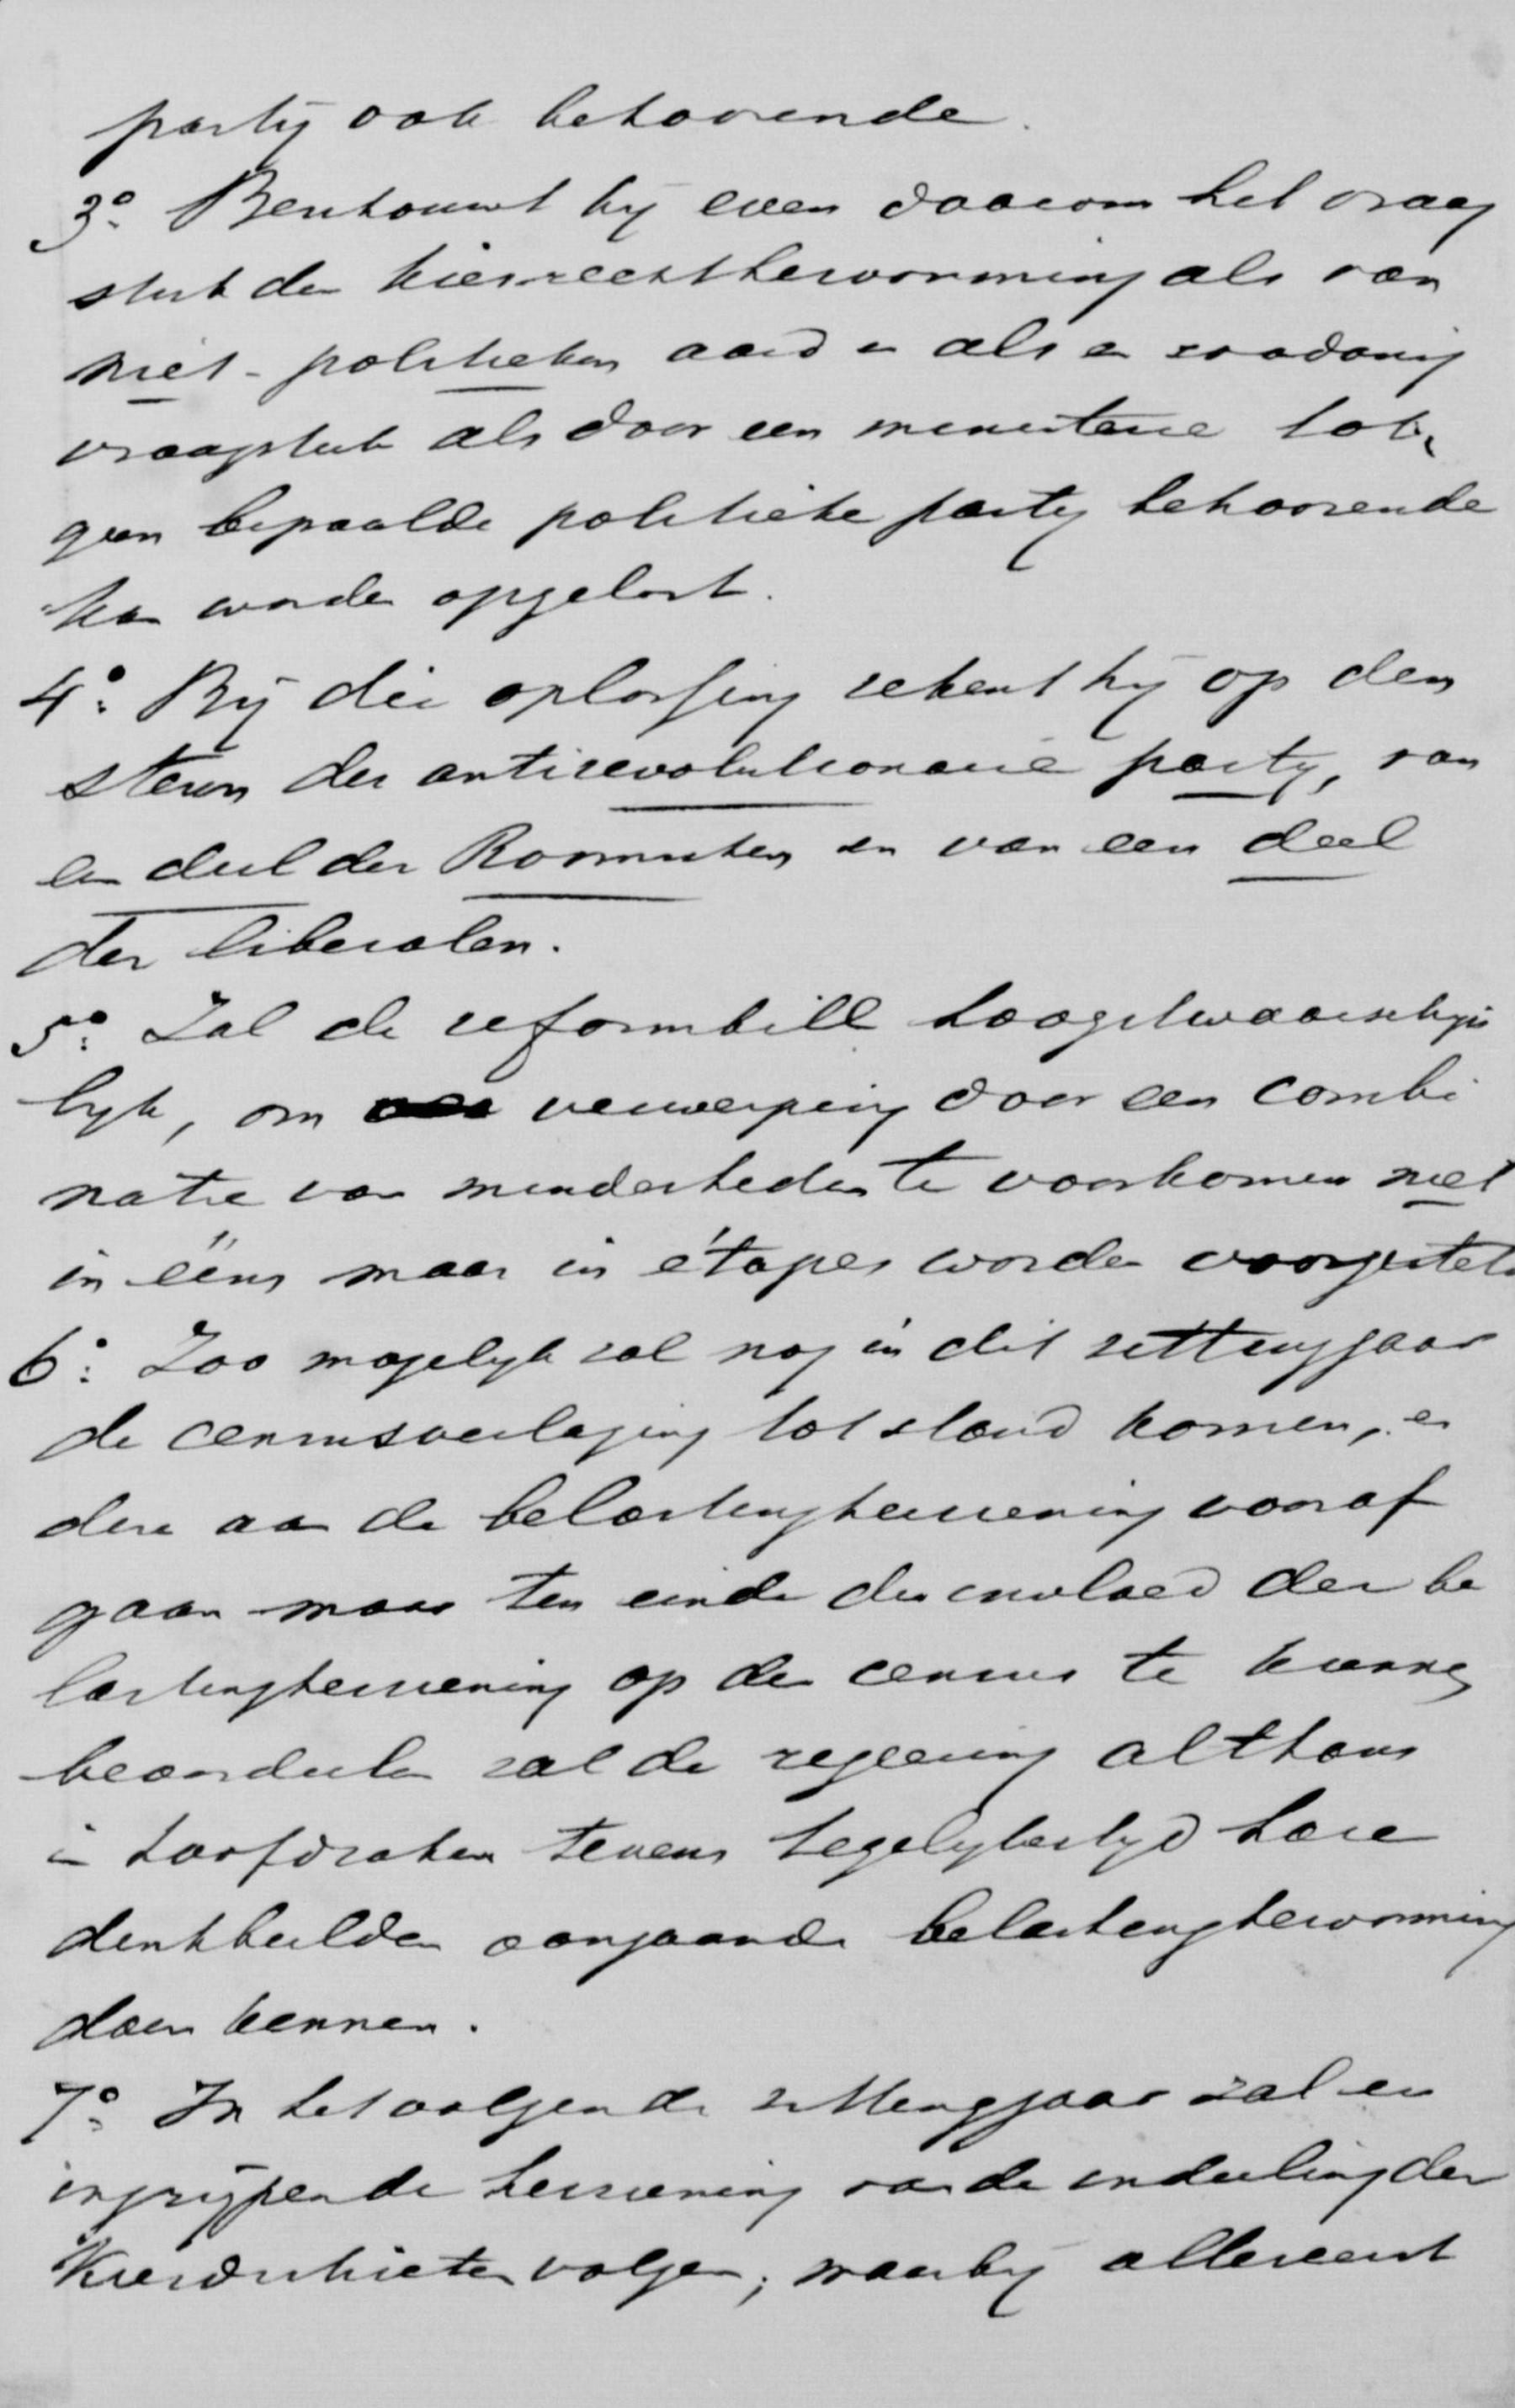 party ook behoorende.
3º. Beschouwt hy even daarom het vraag
stuk der kiesrechthervorming als van
niet-politieken aard en als een zoodanig
vraagstuk als door een ministerie tot
geen bepaalde politieke party behoorende
kan worden opgelost.
4º. Bij die oplossing rekent hij op den
steun der antirevolutionaire party, van
een deel der Roomschen en van een deel
der liberalen.
5º. Zal de reformbill hoogstwaarschyn
lyk, om verwerping door een combi
natie van minderheden te voorkomen niet
in ééns maar in étapes worden voorgesteld
6º. Zoo mogelyk zal nog in dit zittingjaar
de censusverlaging tot stand komen, en
deze aan de belastingherziening vooraf
gaan maar ten einde den invloed der be
lastingherziening op den census te kunnen
beoordeelen zal de regeering althans
in hoofdzaken tevens tegelykertyd hare
denkbeelden aangaande belastinghervorming
doen kennen.
7º. In het volgende zittingjaar zal een
ingrijpende herziening van de indeeling der
Kiesdistricten volgen; waarby allereerst